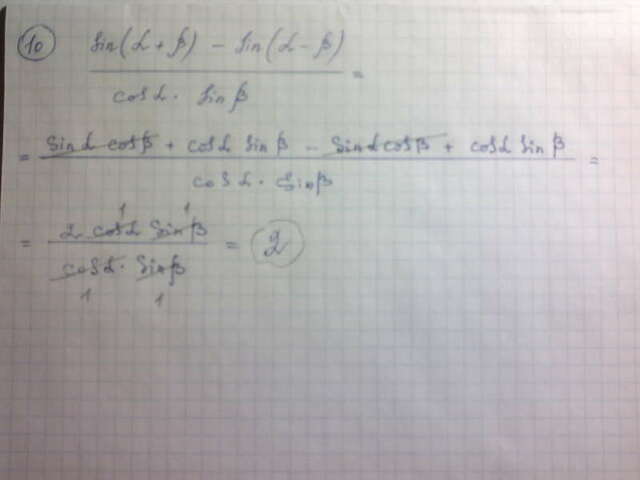 10 sin(α + β) - sin(α - β)
cos α · sin β =
= sin α cos β + cos α sin β - sin α cos β + cos α sin β
cos α · sin β =
1 1
= 2 cos α sin β = 2
cos α · sin β
1 1